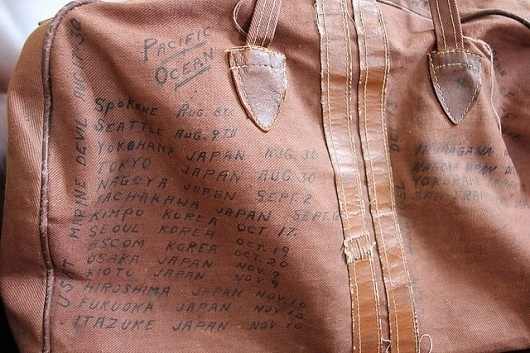 PACIFIC
OCEAN
SPOKANE AUG. 8TH
SEATTLE AUG. 9TH
YOKOHAMA JAPAN AUG. 30
TOKYO JAPAN AUG. 30
NAGOYA JAPAN SEPT. 2
TACHAKAWA JAPAN SEPT.
KIMPO KOREA OCT. 17.
SEOUL KOREA OCT. 19
ASCOM KOREA OCT. 20
OSAKA JAPAN NOV. 9
KIOTO JAPAN NOV. 9
HIROSHIMA JAPAN NOV. 10
FUKUOKA JAPAN NOV. 10
ITAZUKE JAPAN NOV. 10
USNT MARINE DEVIL AUG. 9-30
NAGOYA